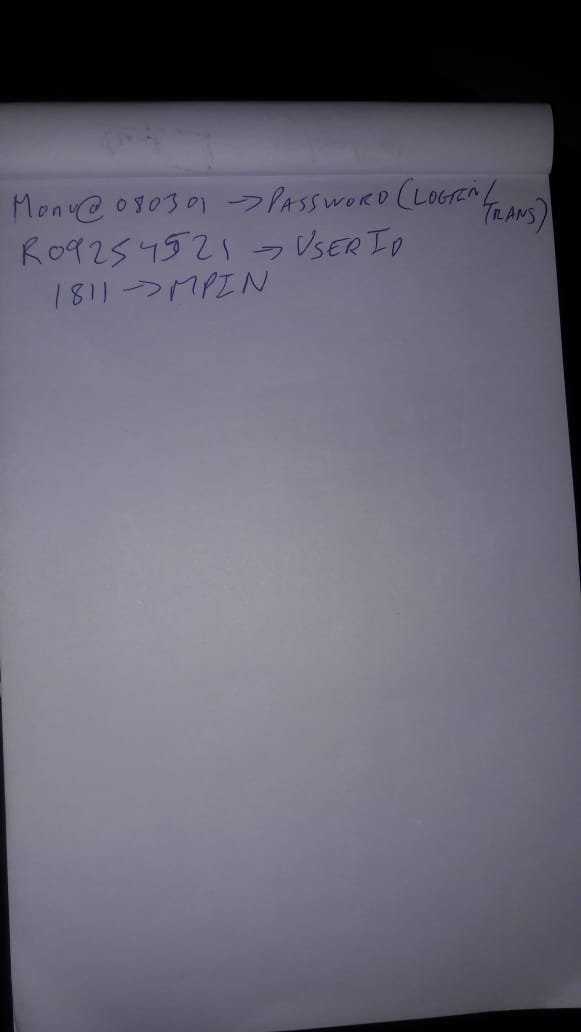 Monu@080301 → PASSWORD (LOGIN/TRANS)
R09254521 → USER ID
1811 → MPIN